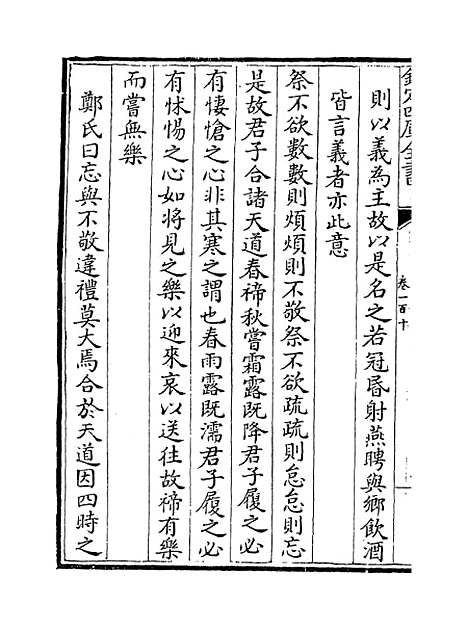 欽定四庫全書
卷一百十
則以義為主故以是名之若冠昬射燕聘與鄉飲酒
皆言義者亦此意
祭不欲數數則煩煩則不敬祭不欲疏疏則怠怠則忘
是故君子合諸天道春禘秋嘗霜露既降君子履之必
有悽愴之心非其寒之謂也春雨露既濡君子履之必
有怵惕之心如將見之樂以迎來哀以送往故禘有樂
而嘗無樂
鄭氏曰忘與不敬違禮莫大焉合於天道因四時之